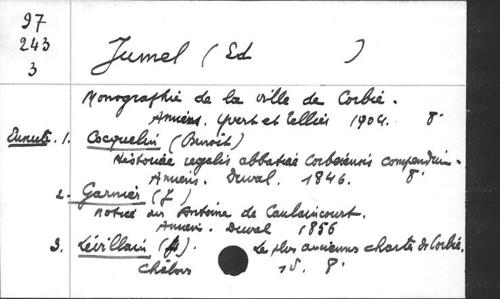 97
243
3
Jumel (Ed )
Monographie de la ville de Corbie.
Amiens. Yvert et Tellier 1904. 8°
1. Cocquelin (Benoit)
Historiae regalis abbatiae Corbeiensis compendium.
Amiens. Duval. 1846. 8°
2. Garnier (J)
Notice sur Antoine de Caulaincourt.
Amiens. Duval 1856
3. Lévillain (). Les plus anciennes chartes de Corbie.
8°